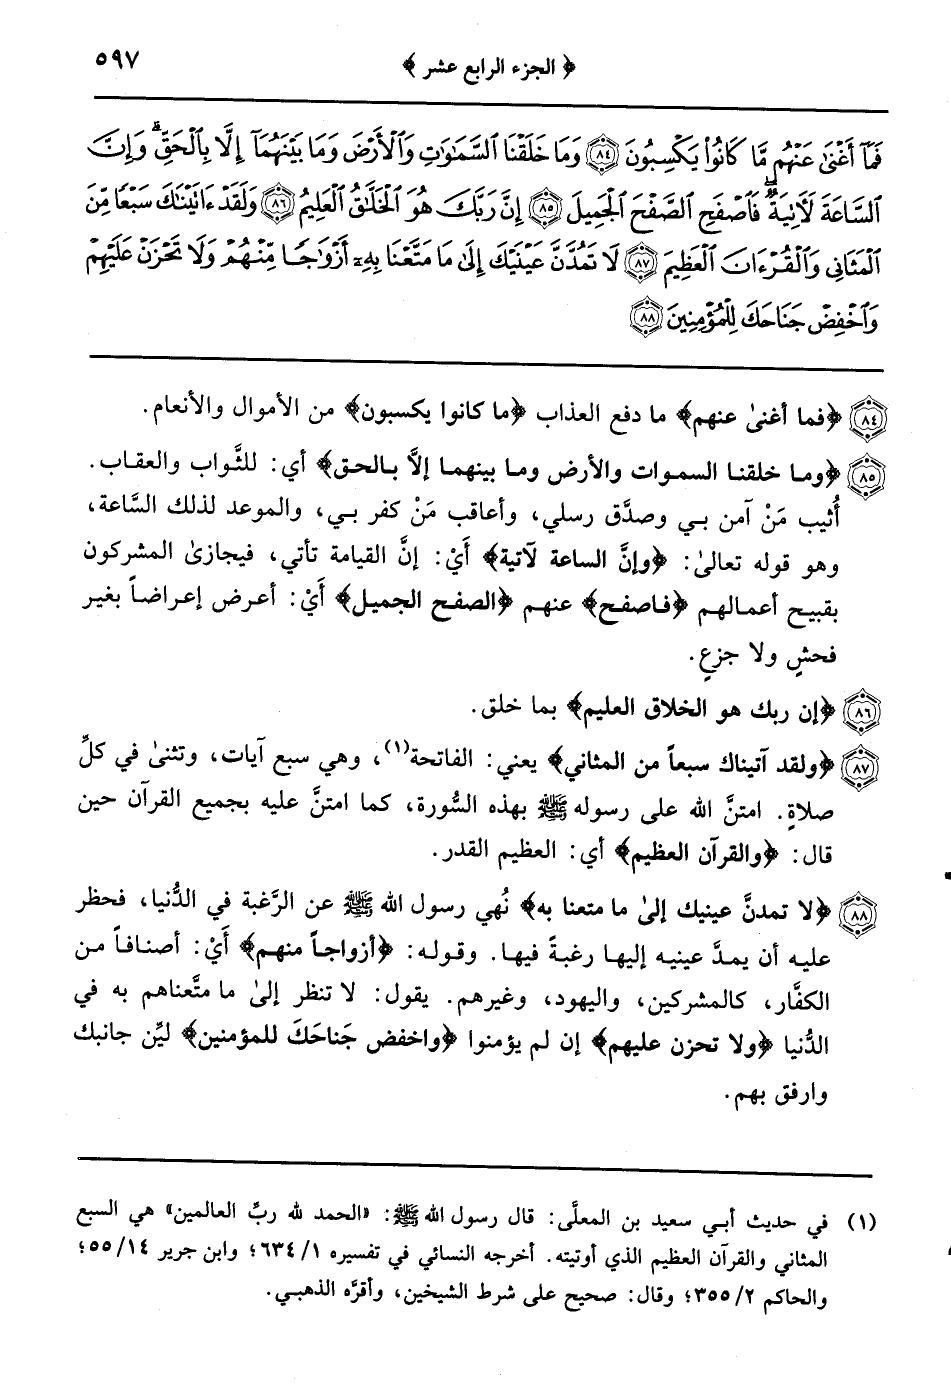 ﴿ الجزء الرابع عشر ﴾ ٥٩٧
فَمَآ أَغْنَىٰ عَنْهُم مَّا كَانُوا۟ يَكْسِبُونَ ٨٤ وَمَا خَلَقْنَا ٱلسَّمَٰوَٰتِ وَٱلْأَرْضَ وَمَا بَيْنَهُمَآ إِلَّا بِٱلْحَقِّ ۗ وَإِنَّ
ٱلسَّاعَةَ لَءَاتِيَةٌ ۖ فَٱصْفَحِ ٱلصَّفْحَ ٱلْجَمِيلَ ٨٥ إِنَّ رَبَّكَ هُوَ ٱلْخَلَّٰقُ ٱلْعَلِيمُ ٨٦ وَلَقَدْ ءَاتَيْنَٰكَ سَبْعًا مِّنَ
ٱلْمَثَانِى وَٱلْقُرْءَانَ ٱلْعَظِيمَ ٨٧ لَا تَمُدَّنَّ عَيْنَيْكَ إِلَىٰ مَا مَتَّعْنَا بِهِۦٓ أَزْوَٰجًا مِّنْهُمْ وَلَا تَحْزَنْ عَلَيْهِمْ
وَٱخْفِضْ جَنَاحَكَ لِلْمُؤْمِنِينَ ٨٨
٨٤ ﴿فما أغنىٰ عنهم﴾ ما دفع العذاب ﴿ما كانوا يكسبون﴾ من الأموال والأنعام.
٨٥ ﴿وما خلقنا السموات والأرض وما بينهما إلَّا بالحق﴾ أي: للثَّواب والعقاب.
أُثيب مَنْ آمن بي وصدَّق رسلي، وأعاقب مَنْ كفر بي، والموعد لذلك السَّاعة،
وهو قوله تعالىٰ: ﴿وإنَّ الساعة لآتية﴾ أَيْ: إنَّ القيامة تأتي، فيجازىٰ المشركون
بقبيح أعمالهم ﴿فاصفح﴾ عنهم ﴿الصفح الجميل﴾ أَيْ: أعرض إعراضاً بغير
فحشٍ ولا جزعٍ.
٨٦ ﴿إن ربك هو الخلاق العليم﴾ بما خلق.
٨٧ ﴿ولقد آتيناك سبعاً من المثاني﴾ يعني: الفاتحة(١)، وهي سبع آيات، وتثنىٰ في كلِّ
صلاةٍ. امتنَّ الله على رسوله ﷺ بهذه السُّورة، كما امتنَّ عليه بجميع القرآن حين
قال: ﴿والقرآن العظيم﴾ أي: العظيم القدر.
٨٨ ﴿لا تمدنَّ عينيك إلىٰ ما متعنا به﴾ نُهي رسول الله ﷺ عن الرَّغبة في الدُّنيا، فحظر
عليه أن يمدَّ عينيه إليها رغبةً فيها. وقوله: ﴿أزواجاً منهم﴾ أَيْ: أصنافاً من
الكفَّار، كالمشركين، واليهود، وغيرهم. يقول: لا تنظر إلىٰ ما متَّعناهم به في
الدُّنيا ﴿ولا تحزن عليهم﴾ إن لم يؤمنوا ﴿واخفض جَناحَكَ للمؤمنين﴾ ليِّن جانبك
وارفق بهم.
(١) في حديث أبي سعيد بن المعلَّى: قال رسول الله ﷺ: «الحمد لله ربِّ العالمين» هي السبع
المثاني والقرآن العظيم الذي أوتيته. أخرجه النسائي في تفسيره ١/ ٦٣٤؛ وابن جرير ١٤/ ٥٥؛
والحاكم ٢/ ٣٥٥؛ وقال: صحيح على شرط الشيخين، وأقرَّه الذهبي.